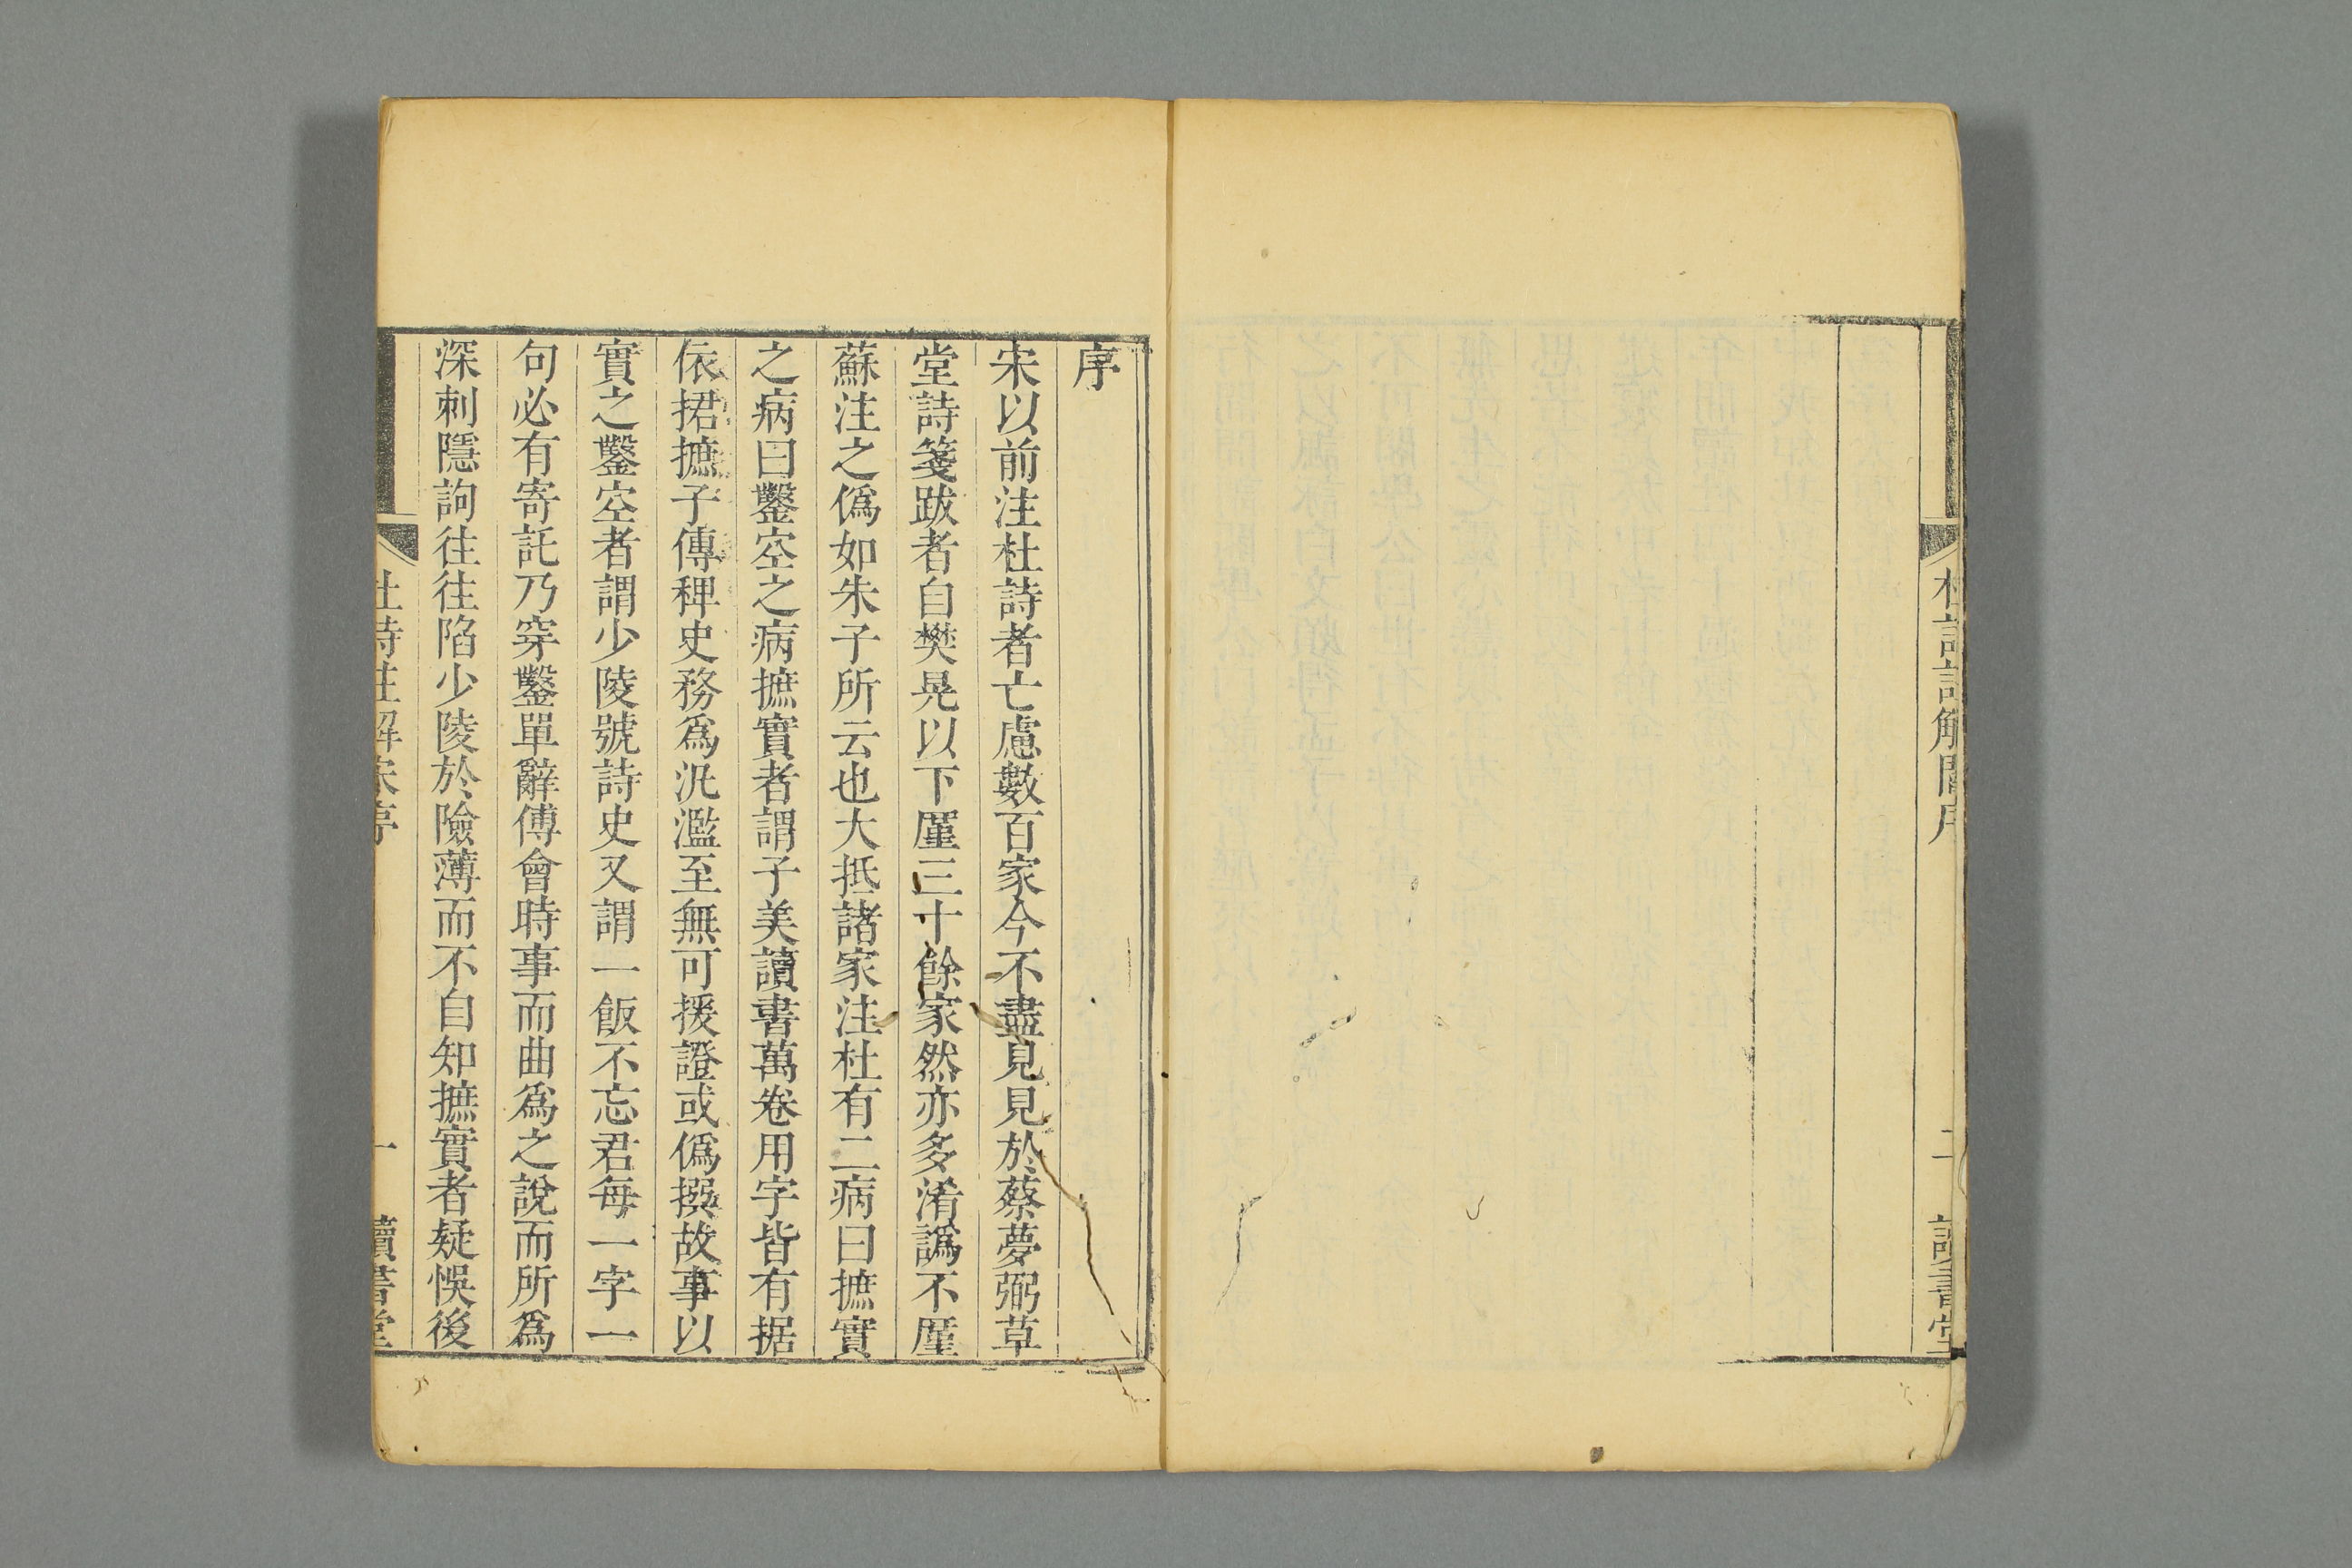 杜詩註解閻序
二
讀書堂
序
宋以前注杜詩者亡慮數百家今不盡見見於蔡夢弼草
堂詩箋跋者自樊晃以下厪三十餘家然亦多淆譌不厪
蘇注之僞如朱子所云也大抵諸家注杜有二病曰摭實
之病曰鑿空之病摭實者謂子美讀書萬卷用字皆有据
依捃摭子傳稗史務爲汎濫至無可援證或僞撰故事以
實之鑿空者謂少陵號詩史又謂一飯不忘君每一字一
句必有寄託乃穿鑿單辭傅會時事而曲爲之說而所爲
深刺隱詞往往陷少陵於險薄而不自知摭實者疑悞後
杜詩註解宋序
一
讀書堂